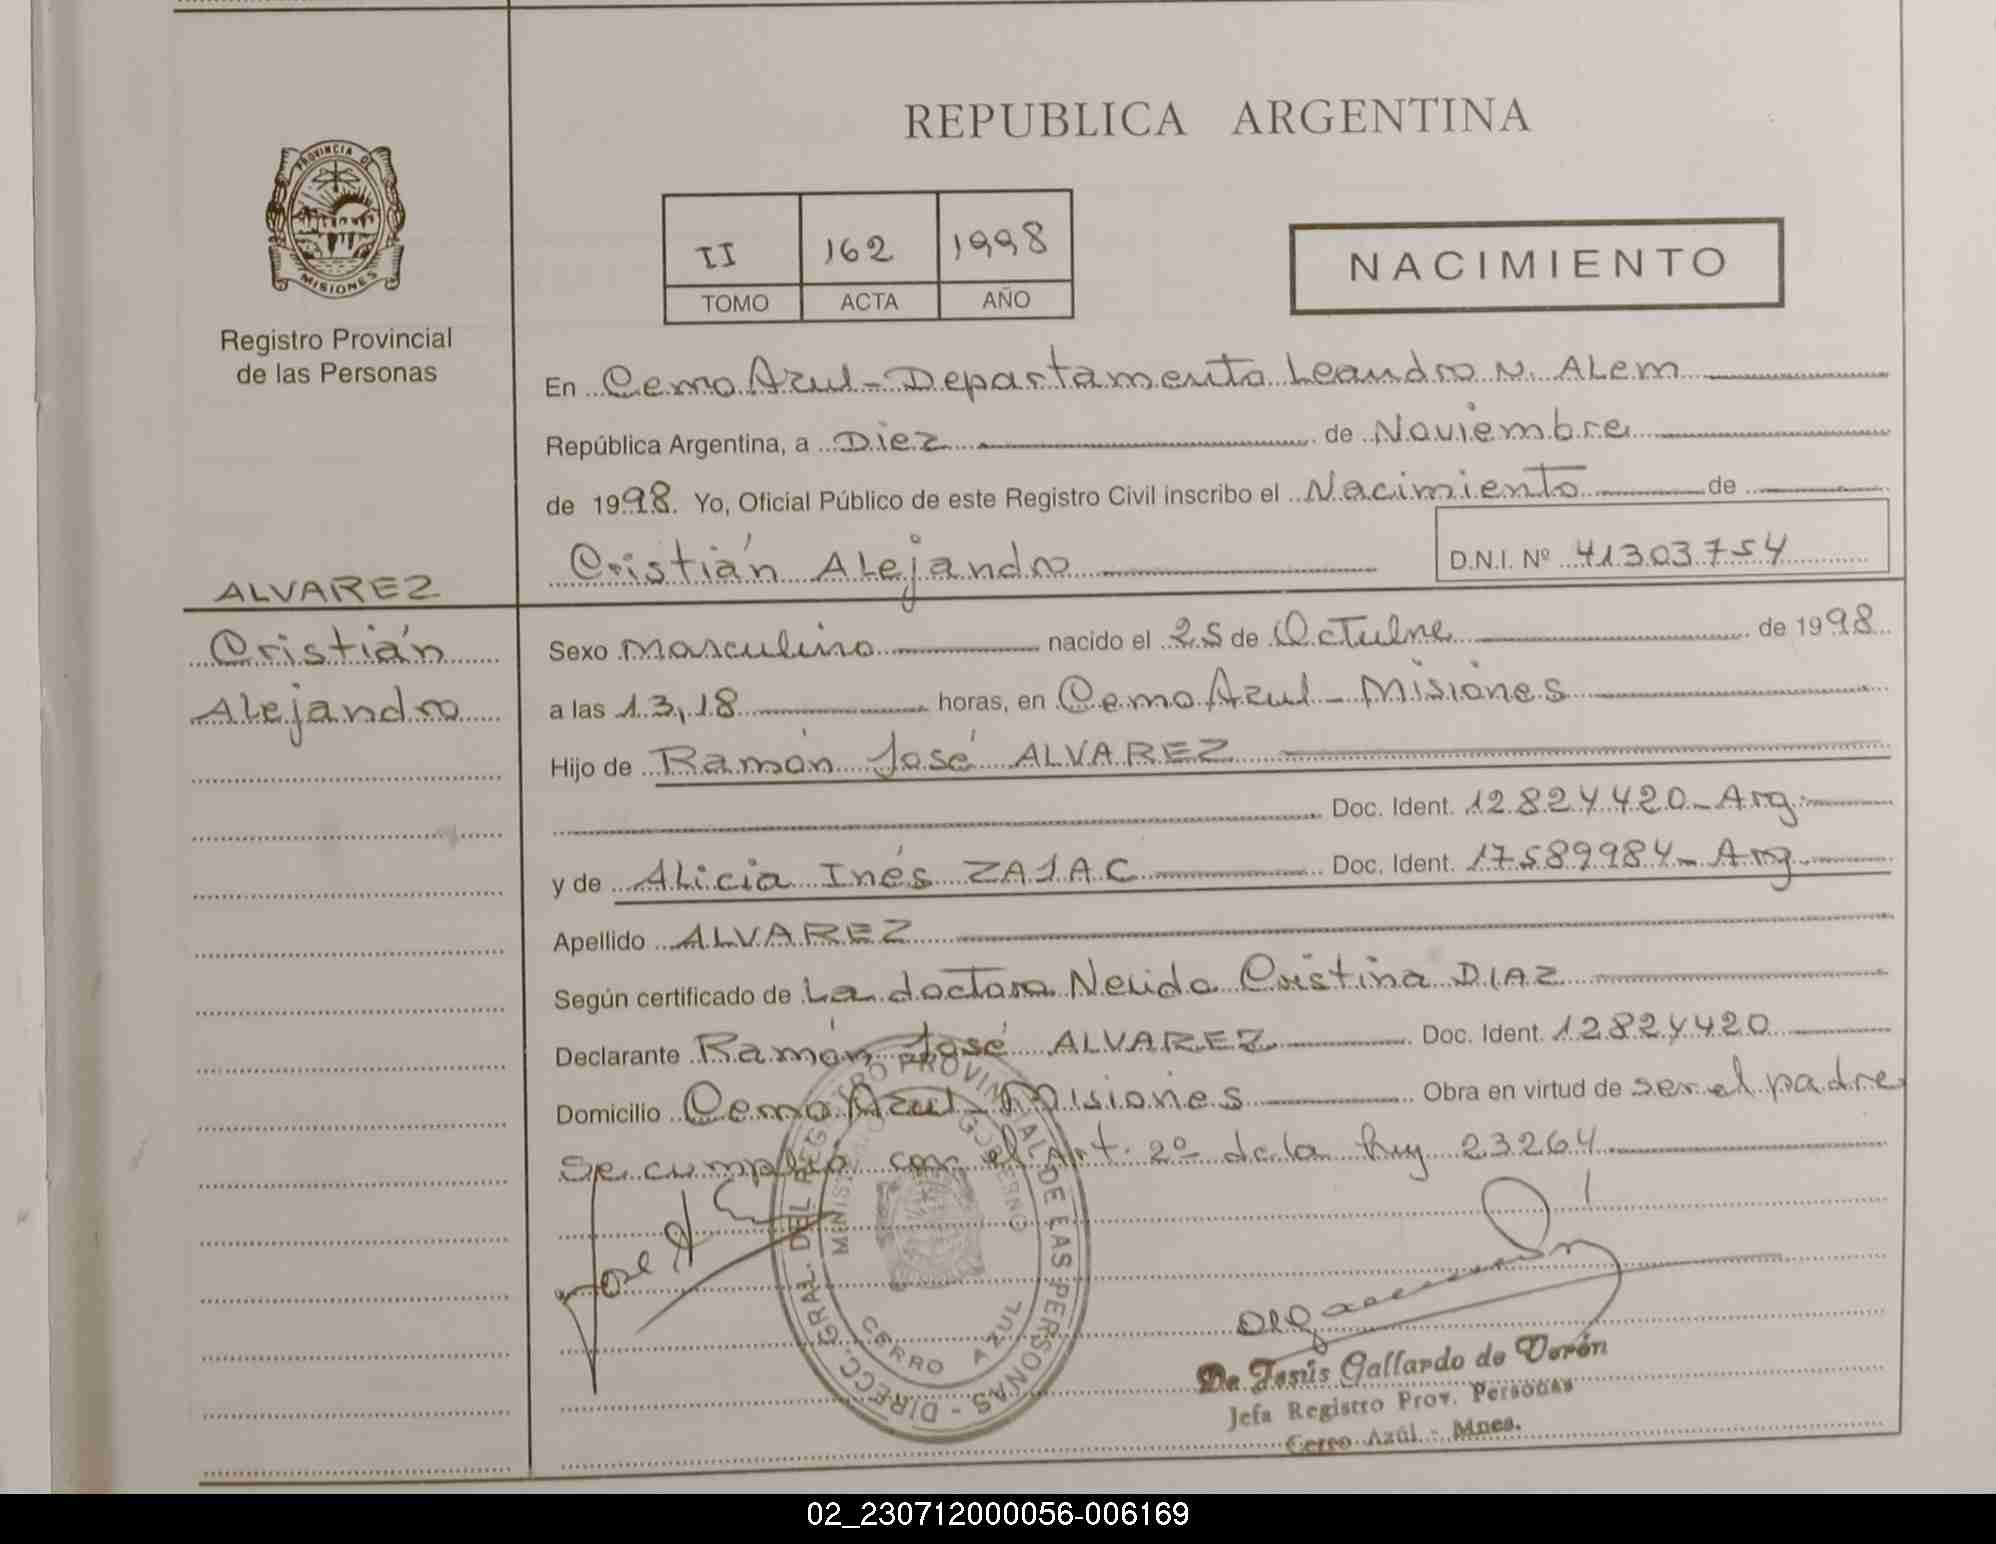 REPUBLICA ARGENTINA
PROVINCIA DE
MISIONES
Registro Provincial
de las Personas
II 162 1998
TOMO ACTA AÑO
NACIMIENTO
En Cerro Azul - Departamento Leandro N. ALem
República Argentina, a Diez de Noviembre
de 1998. Yo, Oficial Público de este Registro Civil inscribo el Nacimiento de
Cristián ALejandro D.N.I. Nº 41303754
ALVAREZ
Cristián
ALejandro
Sexo masculino nacido el 25 de Octubre de 1998
a las 13,18 horas, en Cerro Azul - Misiones
Hijo de Ramón José ALVAREZ
Doc. Ident. 12824420 - Arg.
y de ALicia Inés ZAJAC Doc. Ident. 17589984 - Arg.
Apellido ALVAREZ
Según certificado de La doctora Nelida Cristina DIAZ
Declarante Ramón José ALVAREZ Doc. Ident. 12824420
Domicilio Cerro Azul - Misiones Obra en virtud de ser el padre
Se cumplió con el Art. 2º de la ley 23264
DIRECC. GRAL. DEL REGISTRO PROVINCIAL DE LAS PERSONAS -
CERRO AZUL
De Jesús Gallardo de Verón
Jefa Registro Prov. Personas
Cerro Azúl - Mnes.
02_230712000056-006169